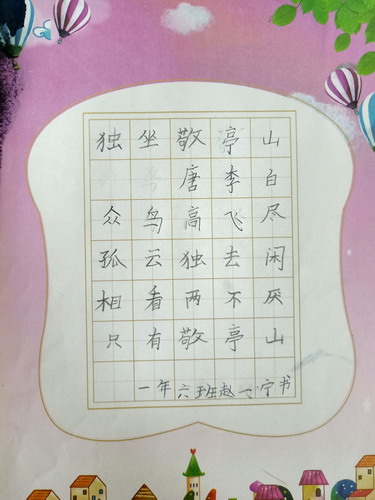 独坐敬亭山
唐李白
众鸟高飞尽
孤云独去闲
相看两不厌
只有敬亭山
一年六班赵一宁书